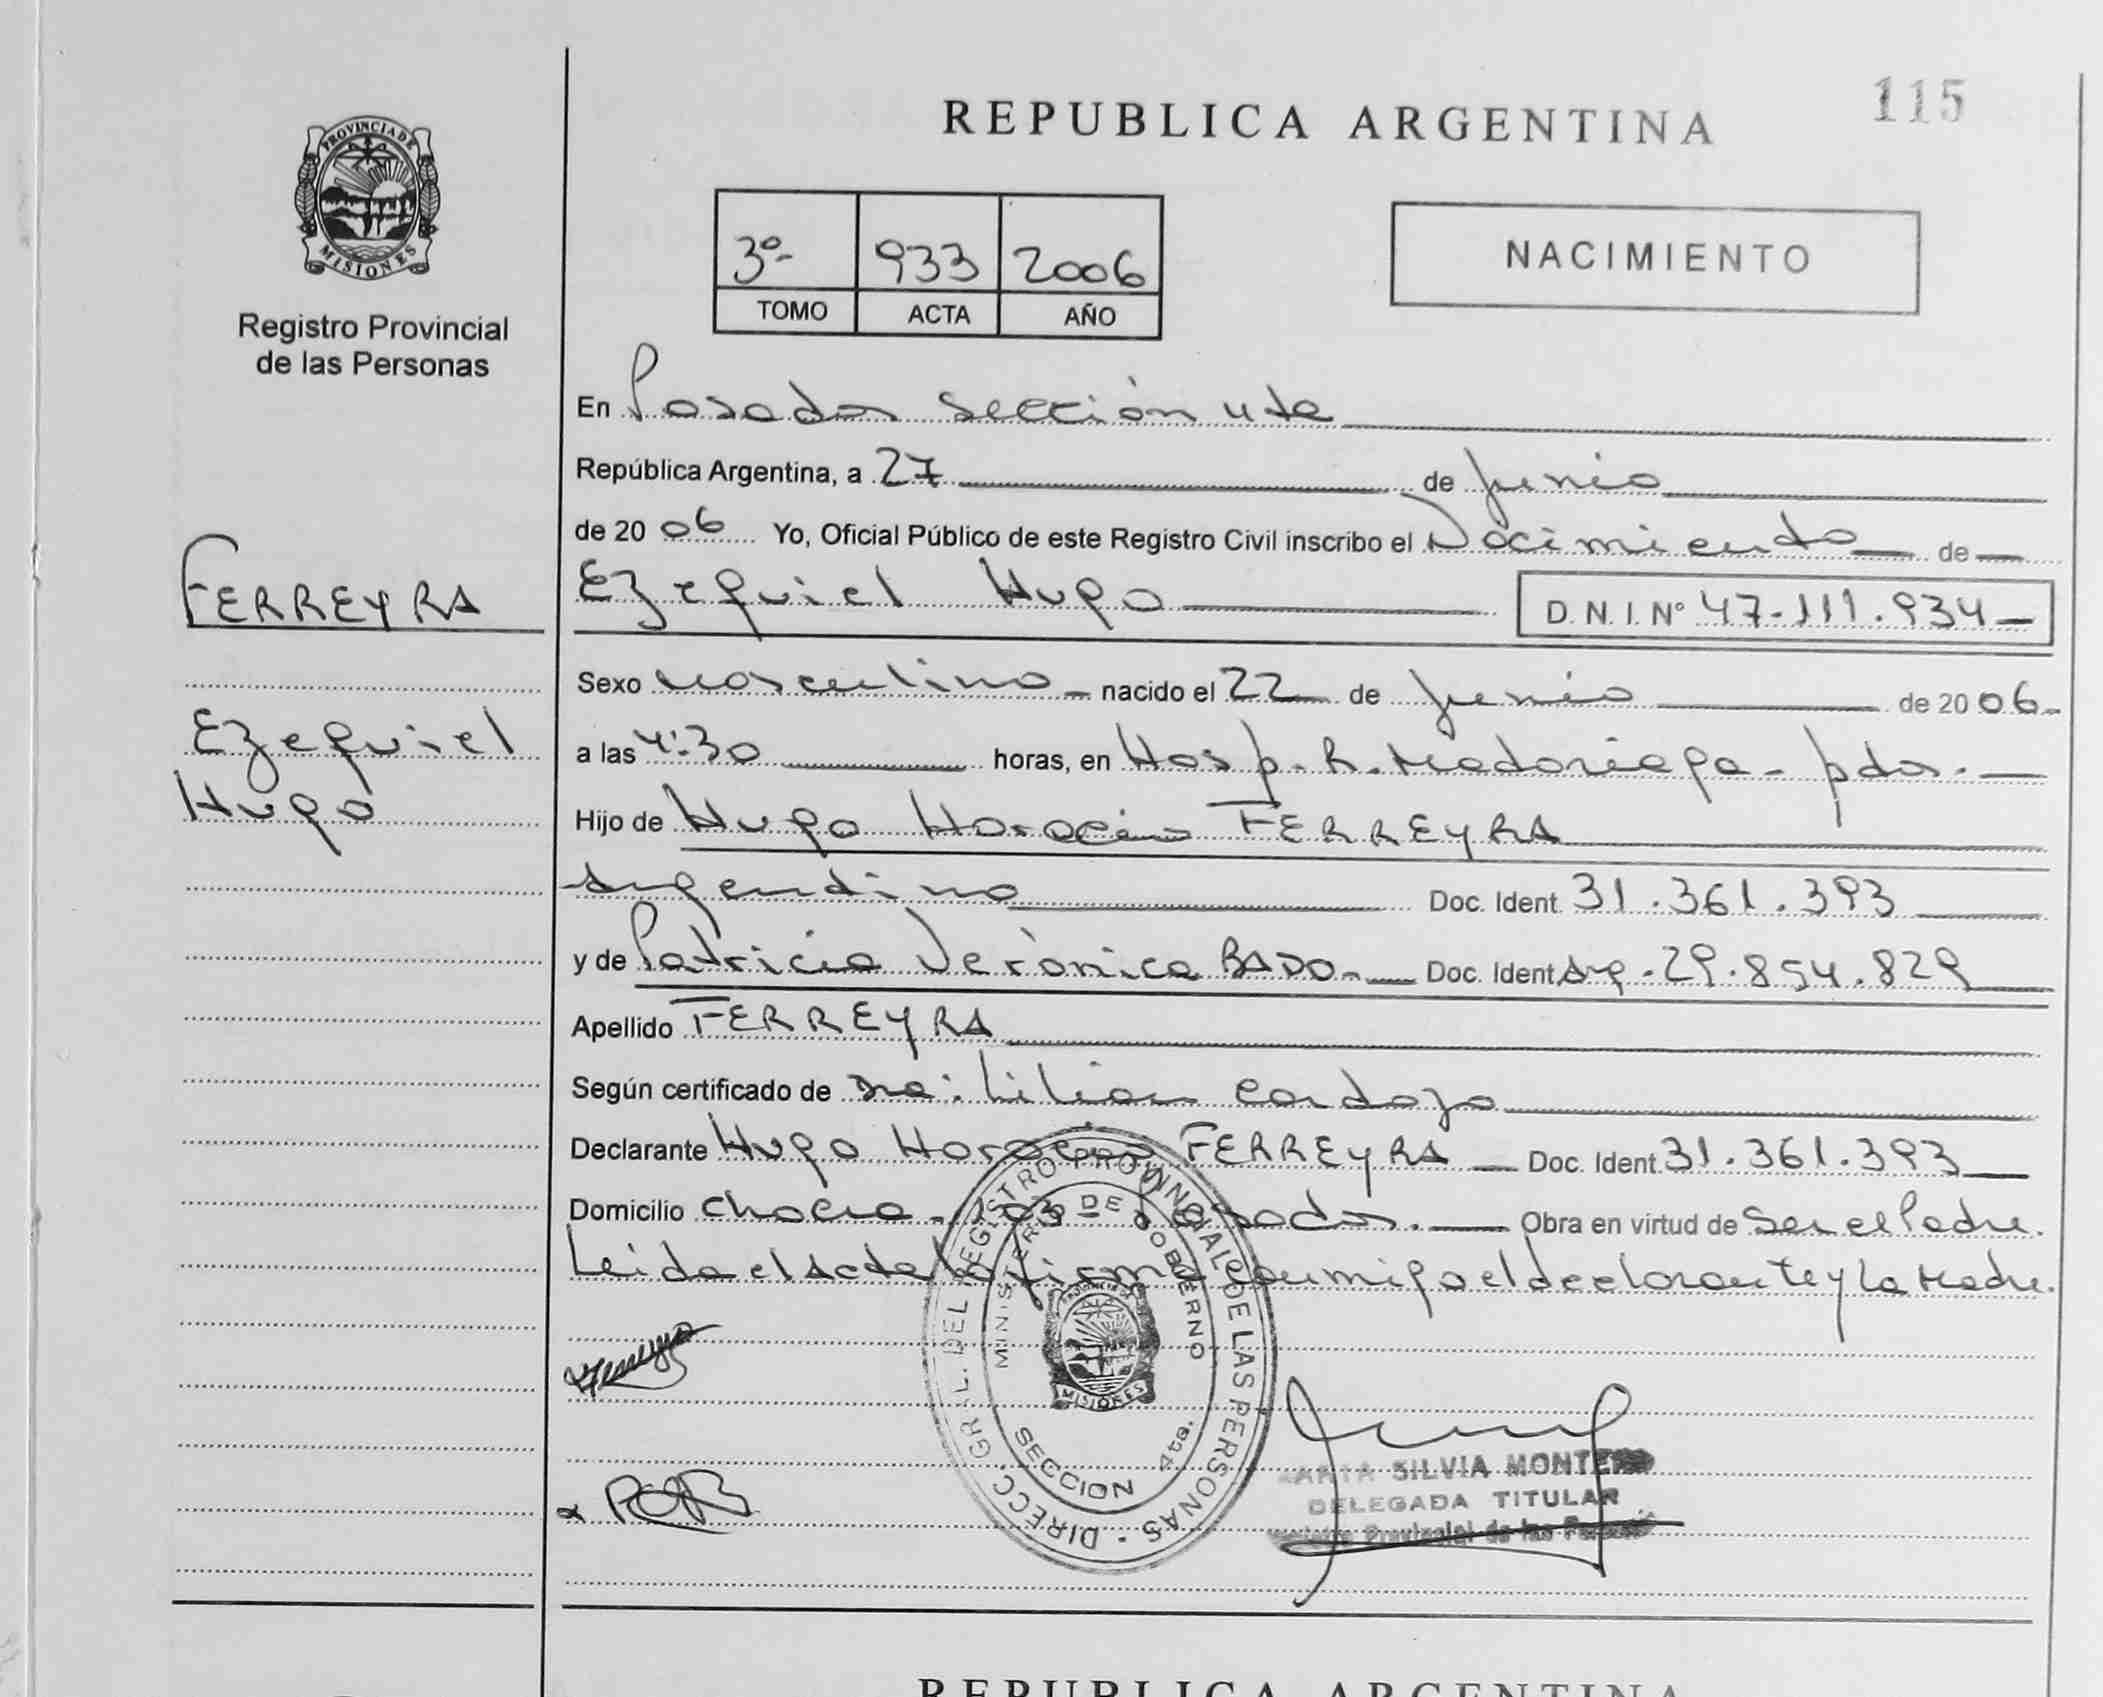 REPUBLICA ARGENTINA
115
PROVINCIA DE
MISIONES
Registro Provincial
de las Personas
3º- 933 2006
TOMO ACTA AÑO
NACIMIENTO
En Posadas Sección 4ta
República Argentina, a 27 de junio
de 2006 Yo, Oficial Público de este Registro Civil inscribo el Nacimiento de
FERREYRA
Ezequiel Hugo D.N.I. Nº 47.111.934
Sexo masculino nacido el 22 de junio de 2006
Ezequiel
Hugo
a las 4:30 horas, en Hosp. R. Madariaga - pdas.
Hijo de Hugo Horacio FERREYRA
Argentino Doc. Ident. 31.361.393
y de Patricia Verónica BADO Doc. Ident. Arg. 29.854.829
Apellido FERREYRA
Según certificado de Dra. Lilian Cardozo
Declarante Hugo Horacio FERREYRA Doc. Ident. 31.361.393
Domicilio chacra 103 - Posadas. Obra en virtud de Ser el Padre.
Leida el Acta la firma conmigo el declarante y la Madre.
DIRECC. GRAL. DEL REGISTRO PROVINCIAL DE LAS PERSONAS
MINISTERIO DE GOBIERNO
PROVINCIA DE
MISIONES
SECCION 4ta.
SILVIA MONTERO
DELEGADA TITULAR
Registro Provincial de las Personas
REPUBLICA ARGENTINA